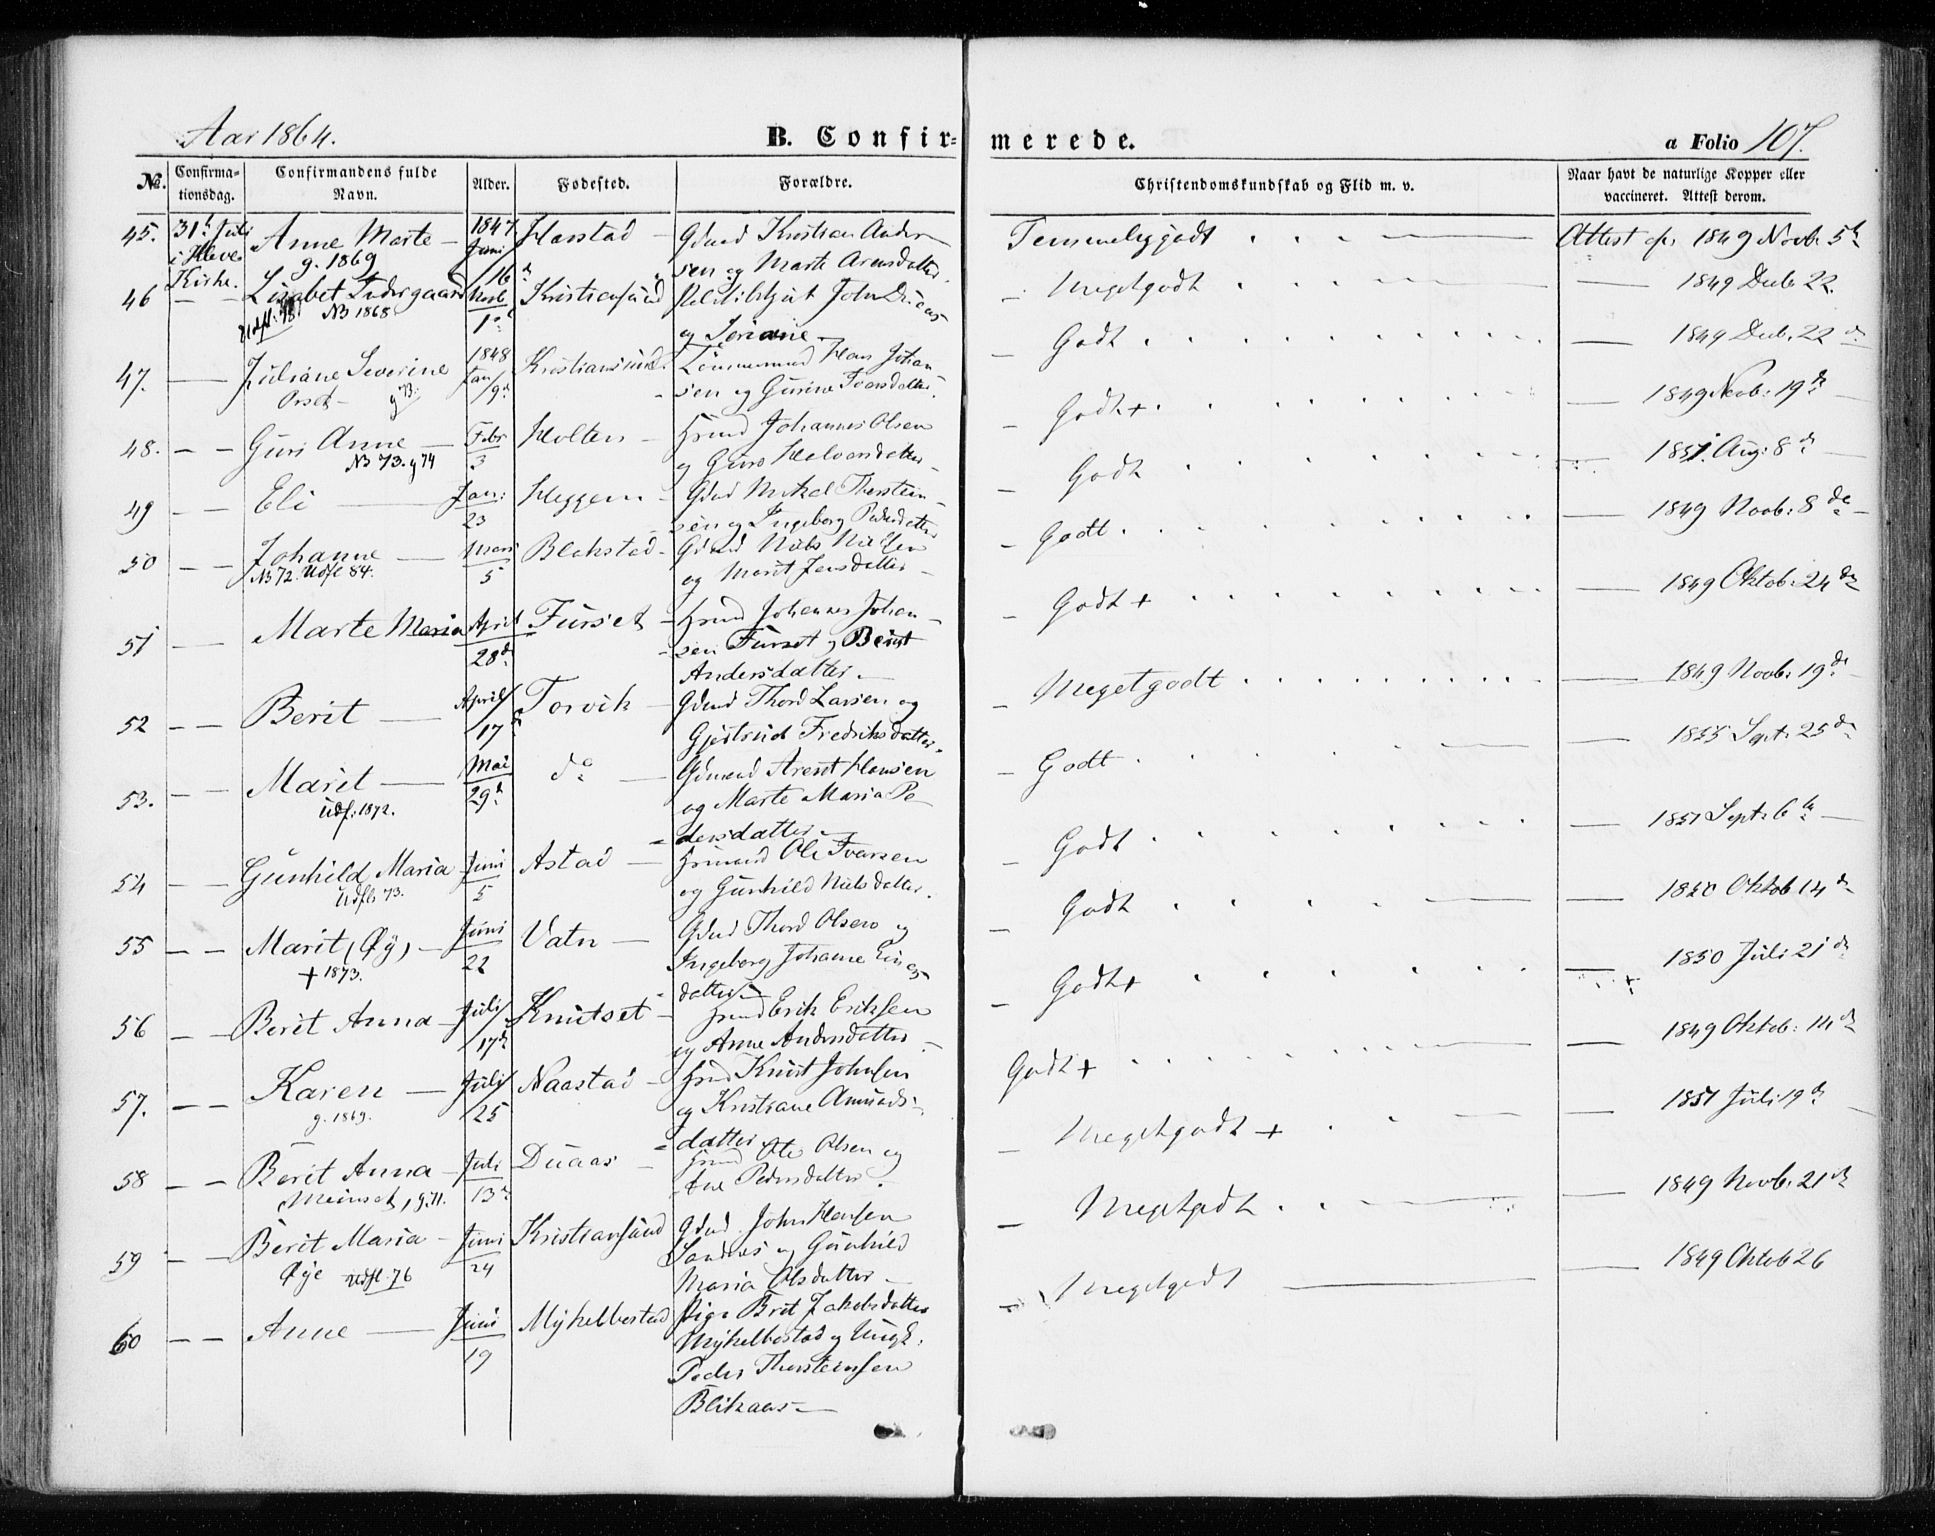 Aar 1864.
B. Confirmerede.
a Folio 107.
No.
Confirmationsdag.
Confirmandens fulde Navn.
Alder.
Fødested.
Forældre.
Christendomskundskab og Flid m. v.
Naar havt de naturlige Kopper eller vaccineret. Attest derom.
45. 31te Juli i Kleve Kirke. Anne Marte — 1847 Juni 16 Harstad — Gdmd Kristian Ander-
g. 1869
sen og Marte Arensdatter. Temmeliggodt Attest af 1849 Novb. 5te
46 — — Lisabet Indergaard Novb 1ste Kristiansund Politibetjent John
NB 1868
og Seriane — Megetgodt — 1849 Decb. 22.
47. — Juliane Severine 1848 Jan/9de Kristiansund. Tømmermand Hans Johan-
Orset — g 73.
sen og Gurine Ivarsdatter. Godt — 1849 Decb. 22de
48. — — Guri Anne — Febr 3 Holten — Hmd Johannes Olsen
NB 73. g 74
og Guro Halvorsdatter — Godt + — 1849 Novb. 19de
49 — — Eli — Jan: 23 Heggem — Gdmd Mikal Thorstein-
sen og Ingeborg Pedersdatter Godt — 1851. Aug: 8de
50 — — Johanne — Mars 5 Blekstad — Gdmd Niels Nielsen
NB 72. Udfl 84.
og Marit Jensdatter — Godt — 1849 Novb: 8de —
51 — Marte Maria April 28de Furset — Hmd Johannes Johan-
sen Furset og Berit
Andersdatter — Godt + — 1849 Oktob. 24de
52 — — Berit — April/17de Torvik — Gdmd Thord Larsen og
Gjertrud Fredriksdatter. Megetgodt — 1849 Novb. 19de
53. — — Marit — Mai 29de do — Gdmand Arent Hansen
Udf. 1872.
og Marte Maria Pe-
dersdatter — Godt — 1855 Sept. 25de
54 — — Gunhild Maria — Juni 5 Astad — Hmand Ole Ivarsen
Udfl. 73.
og Gunhild Nielsdatter. Godt — 1851 Sept. 6te —
55 — — Marit (Øy) — Juni 22 Vatn — Gdmd Thord Olsen og
+ 1873.
Ingeborg Johanne Einars-
datter — Godt — 1850 Oktob 14de
56 — — Berit Anna — Juli/17de Knutset — Hmd Erik Eriksen
og Anne Andersdatter — Godt + — 1850 Juli 21de
57. — — Karen — Juli/25 Naastad — Hmd Knut Johnsen
g. 1869.
og Kristiane Amunds-
datter Godt + — 1849 Oktob: 14de
58 — — Berit Anna — Juli 13de Duaas — Hmd Ole Olsen og
(Meinset) g. 71.
Ane Pedersdatter. Megetgodt + — 1851 Juli 19de
59 — — Berit Maria — Juni 24 Kristiansund Gdmd John Hansen
Øye Udfl. 76
Sandnes og Gunhild
Maria Olsdatter — Megetgodt — 1849 Novb. 21de
60 — — Anne — Juni 19 Myklebostad Pige Brit Jakobsdatter
Myklebostad og Ungk.
Peder Thorsteinsen
Blikaas — Megetgodt — 1849 Oktob 26